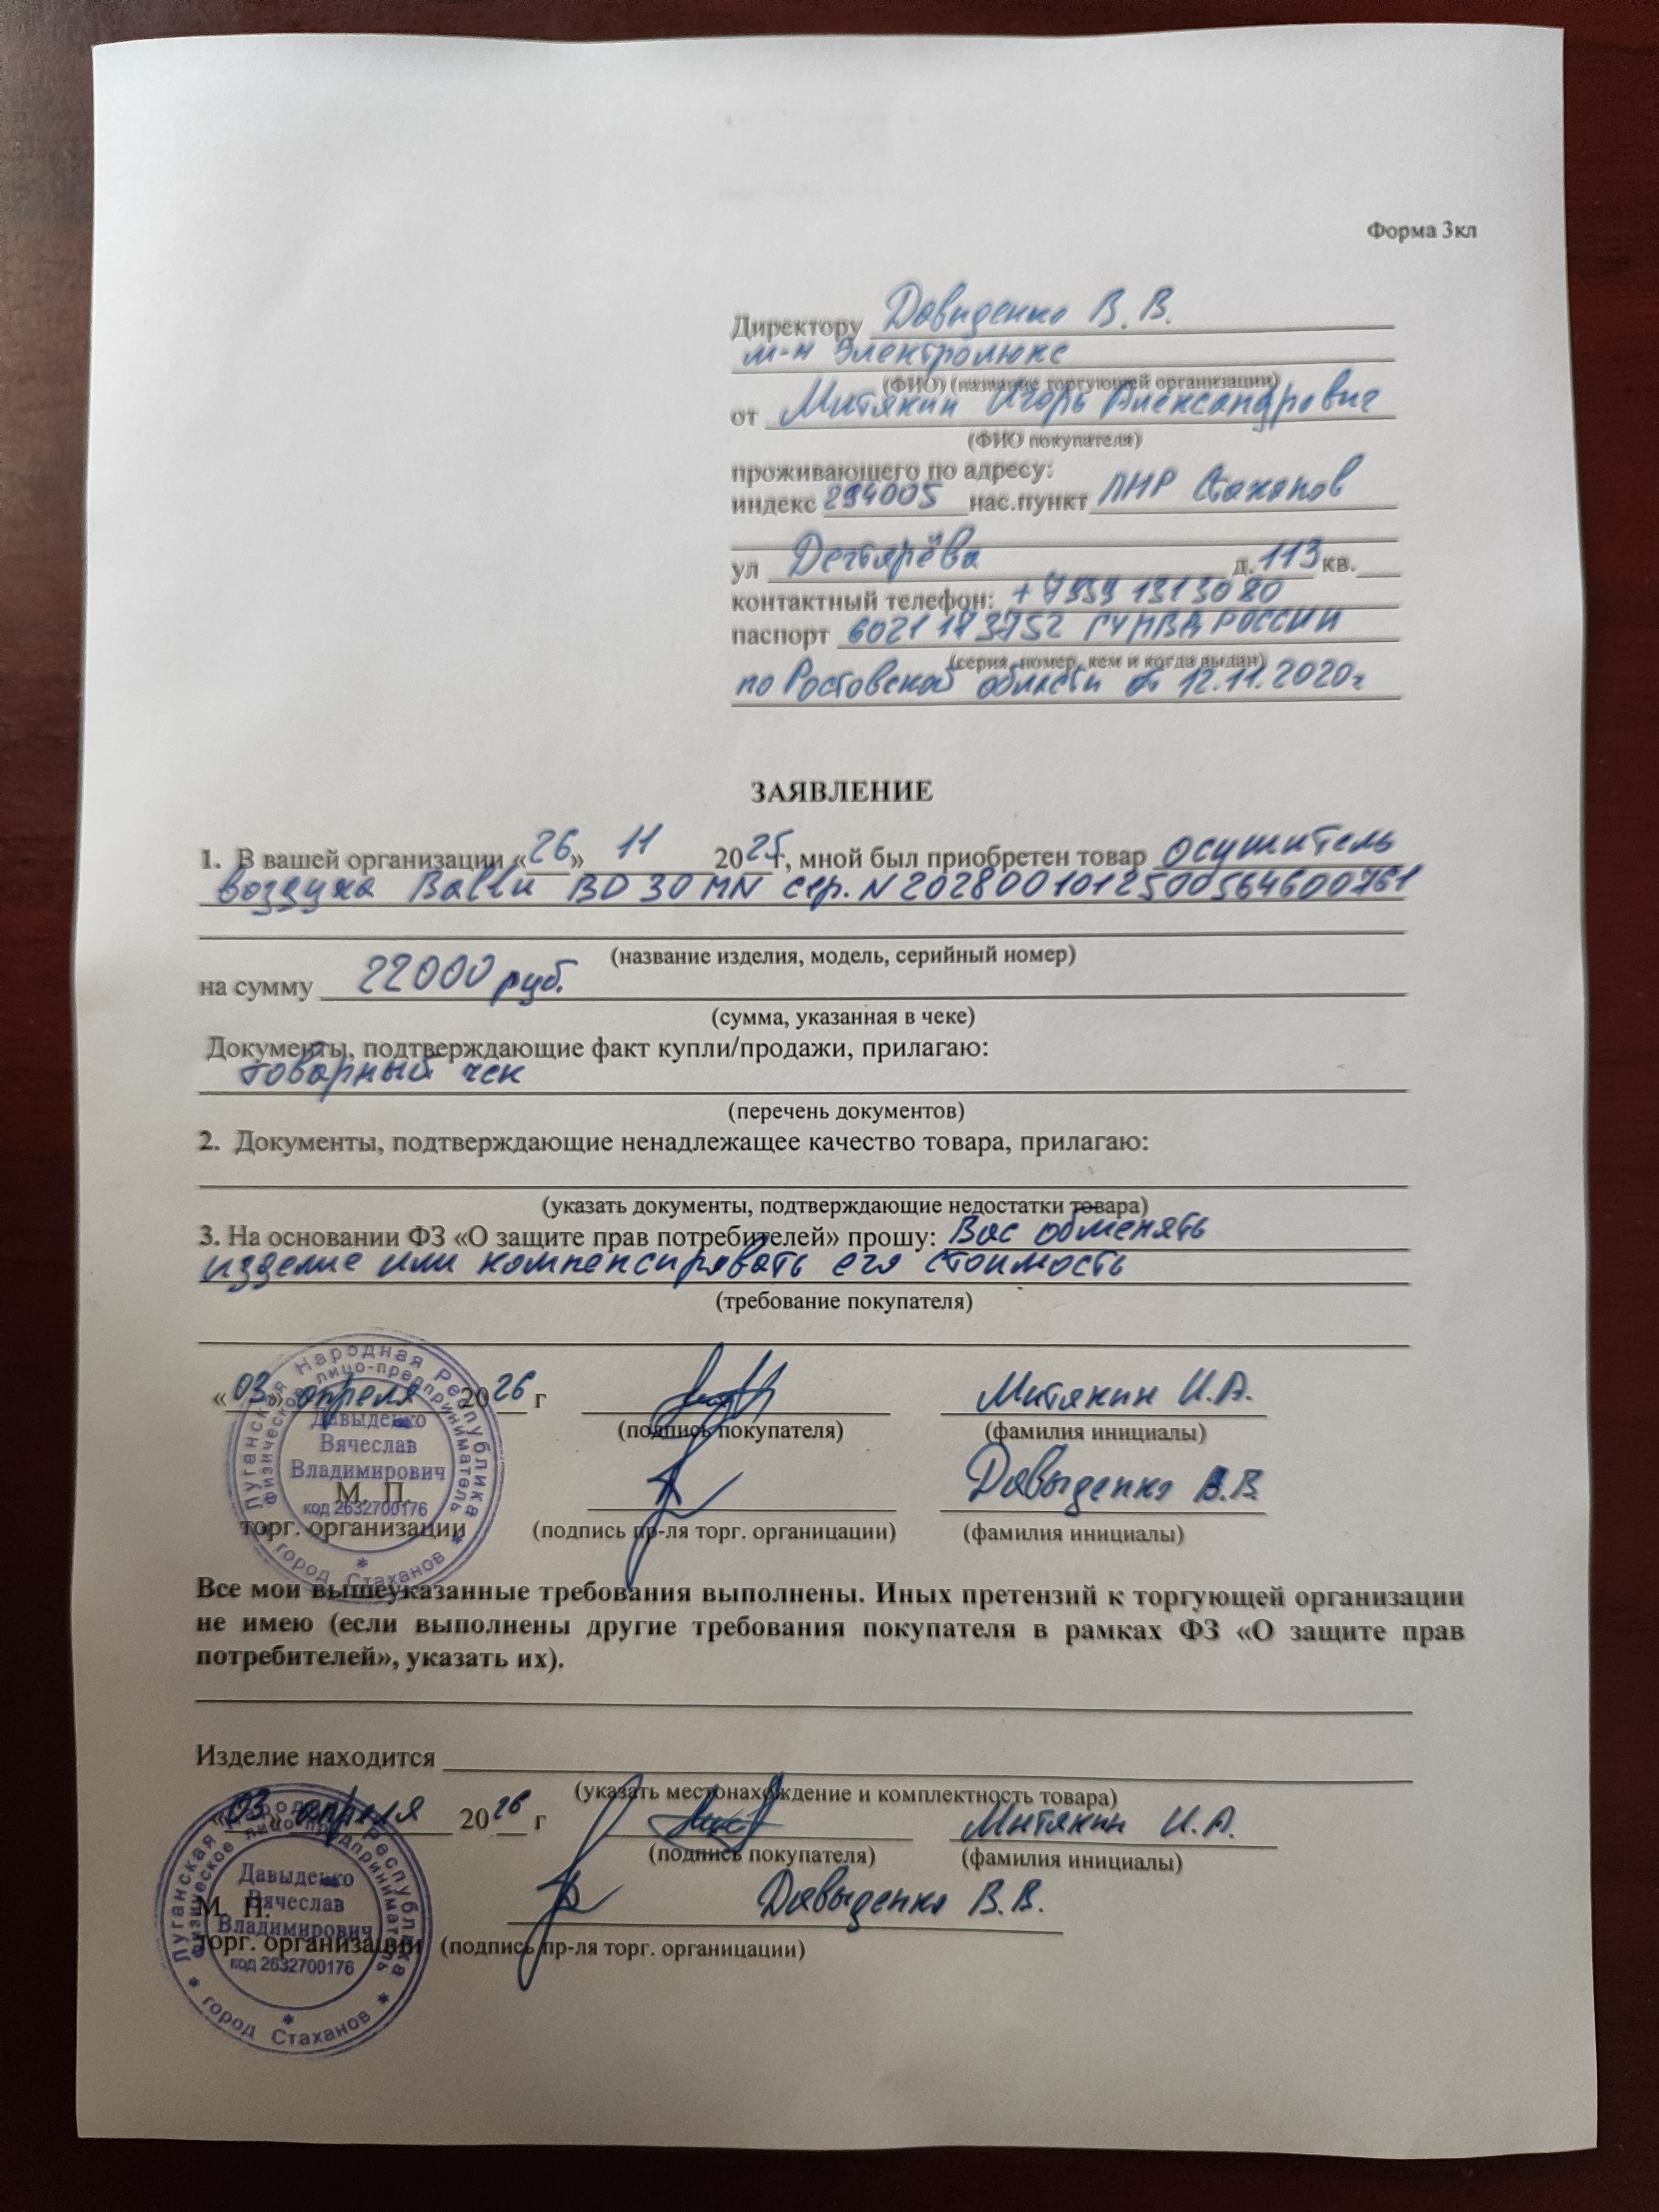 Форма 3кл
Директору Давыденко В. В.
м-н Электролюкс
(ФИО) (название торгующей организации)
от Митякин Игорь Александрович
(ФИО покупателя)
проживающего по адресу:
индекс 294005 нас.пункт ЛНР Стаханов
ул Дегтярёва д.113 кв.
контактный телефон: +7959 1313080
паспорт 6021 173752 ГУ МВД РОССИИ
(серия, номер, кем и когда выдан)
по Ростовской области от 12.11.2020г
ЗАЯВЛЕНИЕ
1. В вашей организации «26» 11 2025г, мной был приобретен товар осушитель
воздуха Ballu BD 30 MN сер. N 2028001012500564600761
(название изделия, модель, серийный номер)
на сумму 22000 руб.
(сумма, указанная в чеке)
Документы, подтверждающие факт купли/продажи, прилагаю:
товарный чек
(перечень документов)
2. Документы, подтверждающие ненадлежащее качество товара, прилагаю:
(указать документы, подтверждающие недостатки товара)
3. На основании ФЗ «О защите прав потребителей» прошу: Вас обменять
изделие или компенсировать его стоимость
(требование покупателя)
«03» апреля 2026 г Митякин И.А.
(подпись покупателя) (фамилия инициалы)
Луганская Народная Республика
физическое лицо-предприниматель
Давыденко
Вячеслав
Владимирович
код 2632700176
город Стаханов
Давыденко В.В.
М. П.
торг. организации (подпись пр-ля торг. органицации) (фамилия инициалы)
Все мои вышеуказанные требования выполнены. Иных претензий к торгующей организации
не имею (если выполнены другие требования покупателя в рамках ФЗ «О защите прав
потребителей», указать их).
Изделие находится
(указать местонахождение и комплектность товара)
«03» апреля 2026 г Митякин И.А.
(подпись покупателя) (фамилия инициалы)
Луганская Народная Республика
физическое лицо-предприниматель
Давыденко
Вячеслав
Владимирович
код 2632700176
город Стаханов
Давыденко В.В.
М. П.
торг. организации (подпись пр-ля торг. органицации)